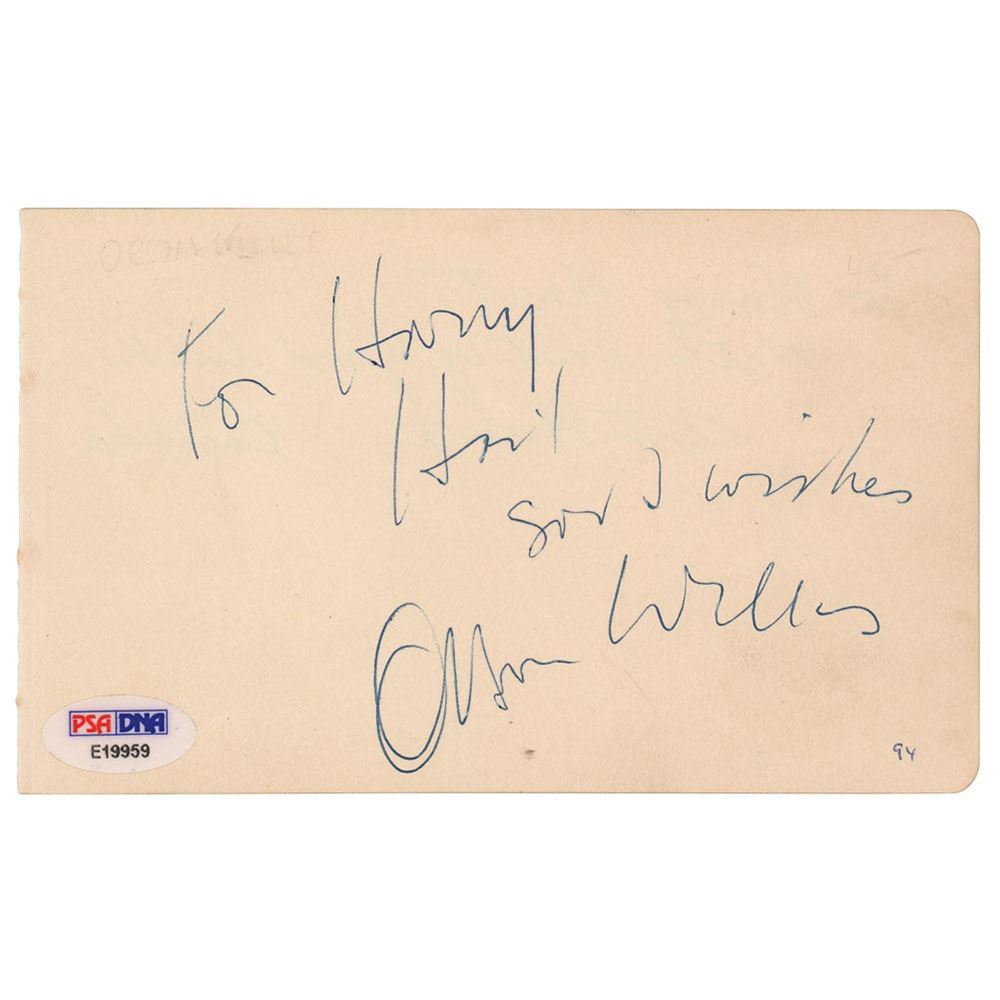 ORSON WELLES
For Harry
Hail
good wishes
Orson Welles
PSA DNA
E19959
94